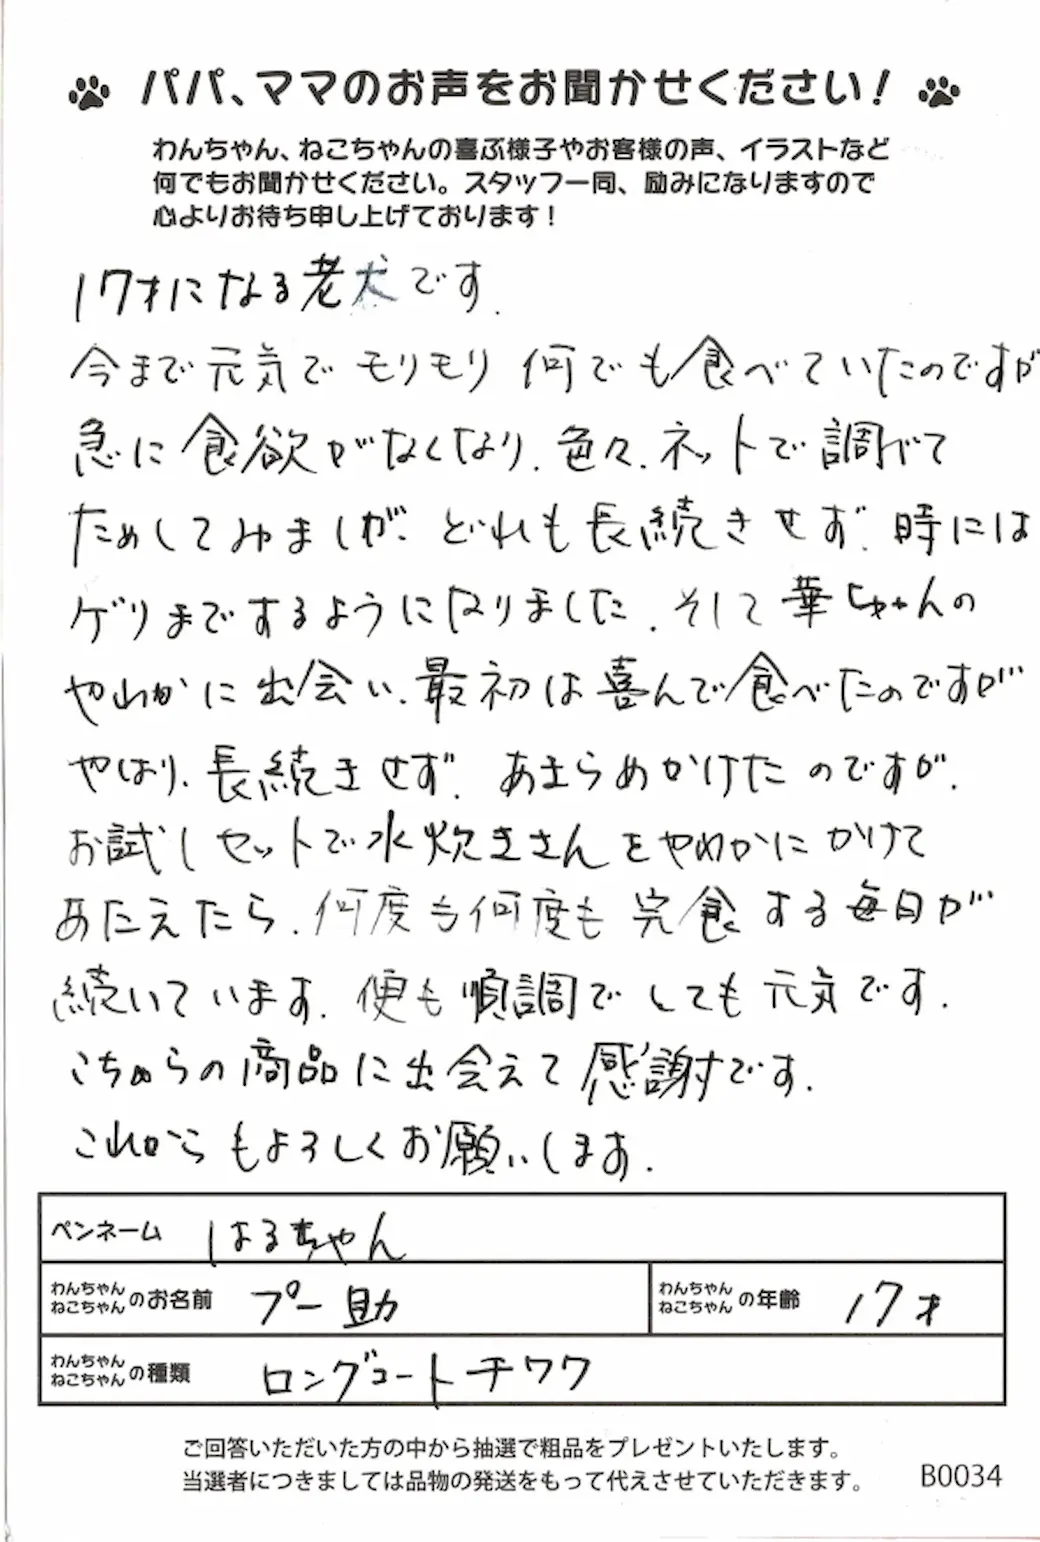 パパ、ママのお声をお聞かせください！
わんちゃん、ねこちゃんの喜ぶ様子やお客様の声、イラストなど
何でもお聞かせください。スタッフ一同、励みになりますので
心よりお待ち申し上げております！
17才になる老犬です.
今まで元気でモリモリ何でも食べていたのですが
急に食欲がなくなり、色々、ネットで調べて
ためしてみましが、どれも長続きせず、時には
ゲリまでするようになりました. そして華ちゃんの
やわかに出会い、最初は喜んで食べたのですが
やはり、長続きせず. あきらめかけたのですが、
お試しセットで水炊きさんをやわかにかけて
あたえたら、何度も何度も完食する毎日が
続いています. 便も順調でとても元気です.
こちらの商品に出会えて感謝です.
これからもよろしくお願いします.
ペンネーム はるちゃん
わんちゃん ねこちゃん のお名前 プー助
わんちゃん ねこちゃん の年齢 17才
わんちゃん ねこちゃん の種類 ロングコートチワワ
ご回答いただいた方の中から抽選で粗品をプレゼントいたします。
当選者につきましては品物の発送をもって代えさせていただきます。
B0034